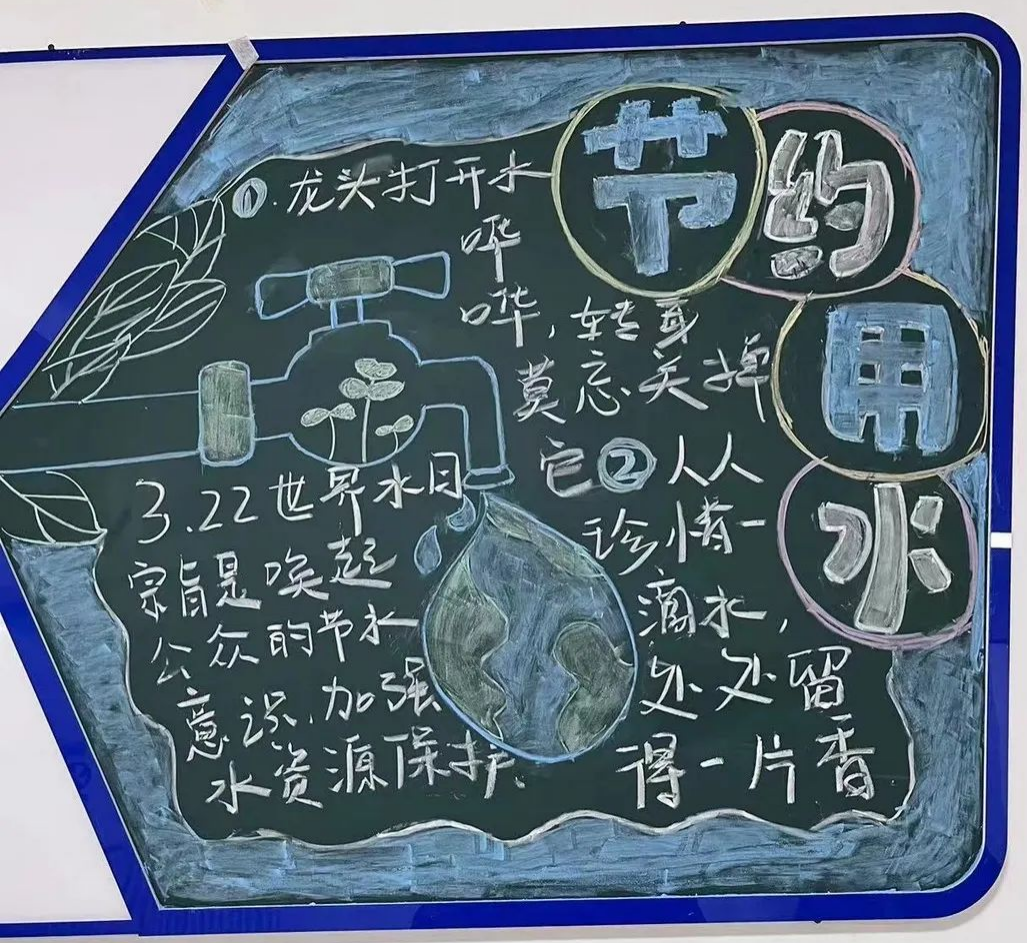 节约用水
①.龙头打开水
哗
哗,转身
莫忘关掉
它②人人
珍惜一
滴水,
处处留
得一片香
3.22世界水日
宗旨是唤起
公众的节水
意识,加强
水资源保护.